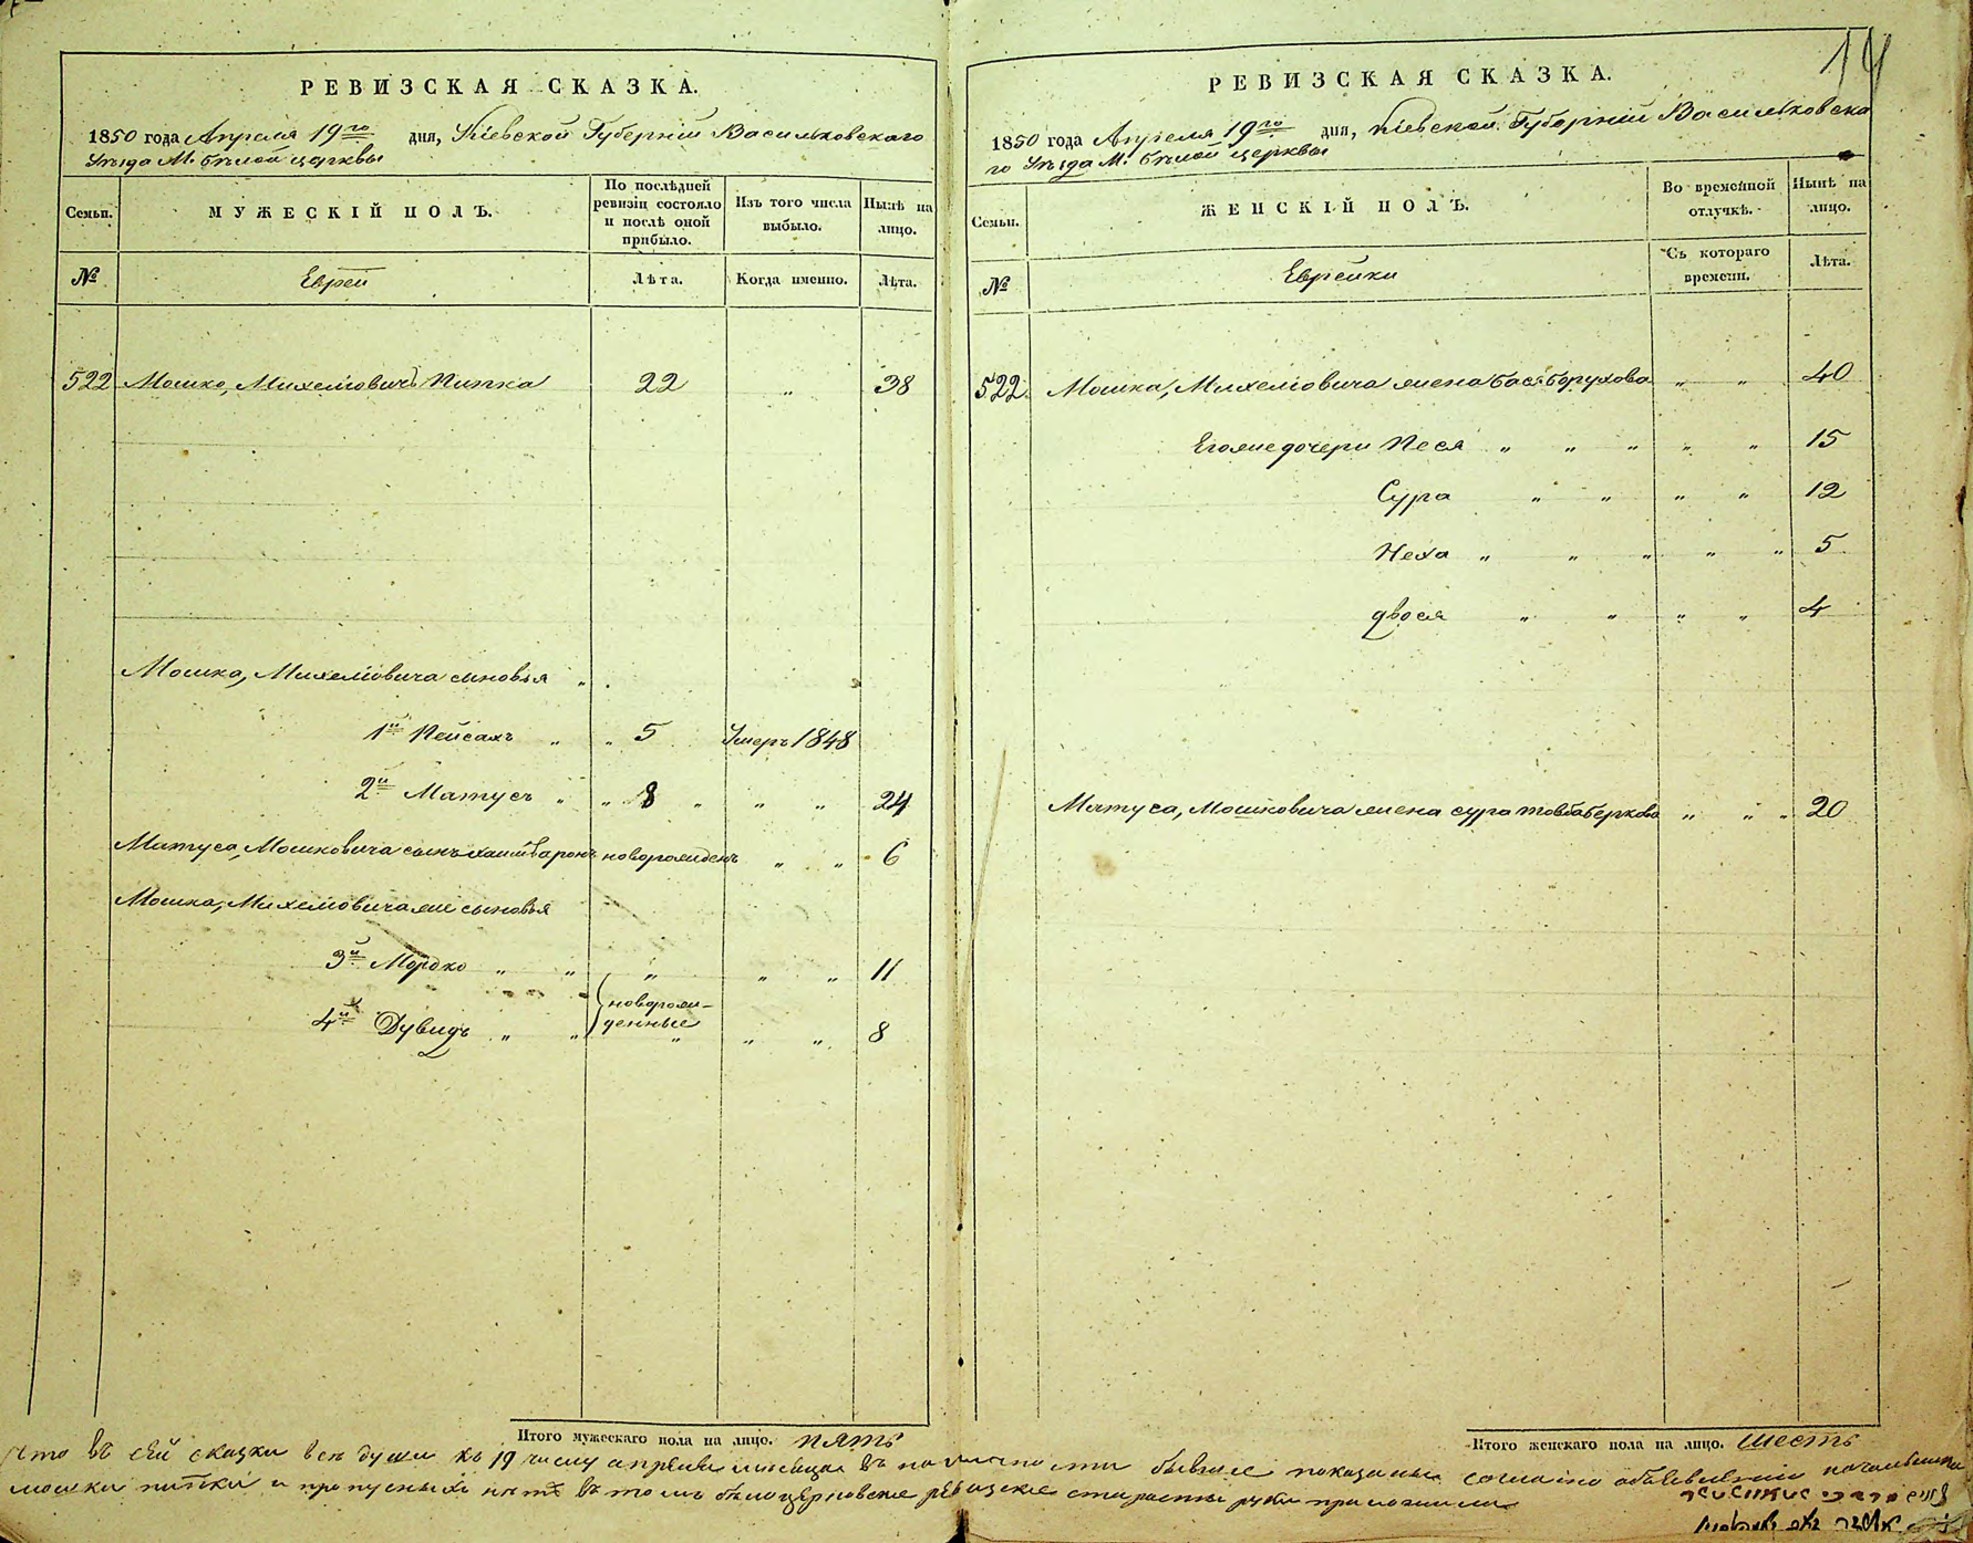 РЕВИЗСКАЯ СКАЗКА.
1850 года Апреля 19го дня, Кіевской Губерніи Васильковскаго
Уѣзда М. Бѣлой церквы
Семьи.
МУЖЕСКІЙ ПОЛЪ.
По послѣдней ревизіи состояло и послѣ оной прибыло.
Изъ того числа выбыло.
Нынѣ на лицо.
№
Евреи
Лѣта.
Когда именно.
Лѣта.
522 Мошко, Михеліовичъ Пипка 22 „ 38
Мошка, Михеліовича сыновья „
1й Пейсахъ „ „ 5 Умеръ 1848
2й Матусъ „ „ 8 „ „ „ 24
Матуса, Мошковича сынъ хаимъ аронъ новорожденъ „ „ 6
Мошка, Михеліовича же сыновья
3й Мордко „ „ „ „ „ 11
новорож-
4й Дувидъ „ „ денные „ „ „ 8
Итого мужескаго пола на лицо. пять
РЕВИЗСКАЯ СКАЗКА.
14
1850 года Апреля 19го дня, Кіевской Губерніи Васильковска
го Уѣзда М. Бѣлой церквы
Семьи.
ЖЕНСКІЙ ПОЛЪ.
Во временной отлучкѣ.
Нынѣ на лицо.
№
Еврейки
Съ котораго времени.
Лѣта.
522 Мошка, Михеліовича жена Бася Борухова „ „ 40
Его же дочери Песя „ „ „ „ „ 15
Сура „ „ „ „ 12
Неха „ „ „ „ „ 5
двося „ „ „ „ 4
Матуса, Мошковича жена сура товба беркова „ „ „ 20
Итого женскаго пола на лицо. шесть
Что въ сей сказки все души къ 19 числу апреля месяца въ наличности бывшее показаны согласно объявленію
мошки пипки и пропускныхъ нетъ въ томъ белоцерковские ревизские старосты руки приложили